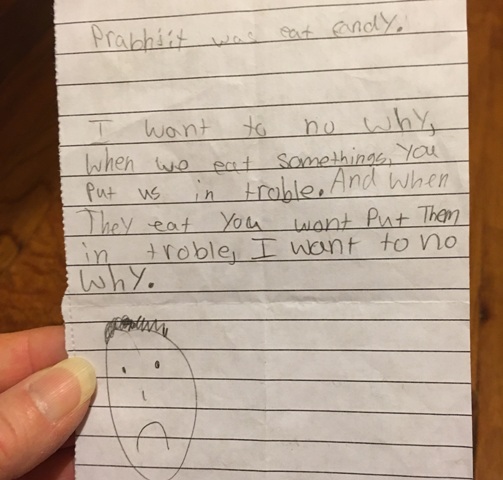 Prabhjit was eat candy.
I want to no why,
when we eat somethings, you
put us in troble. And when
They eat you wont Put Them
in troble, I want to no
why.